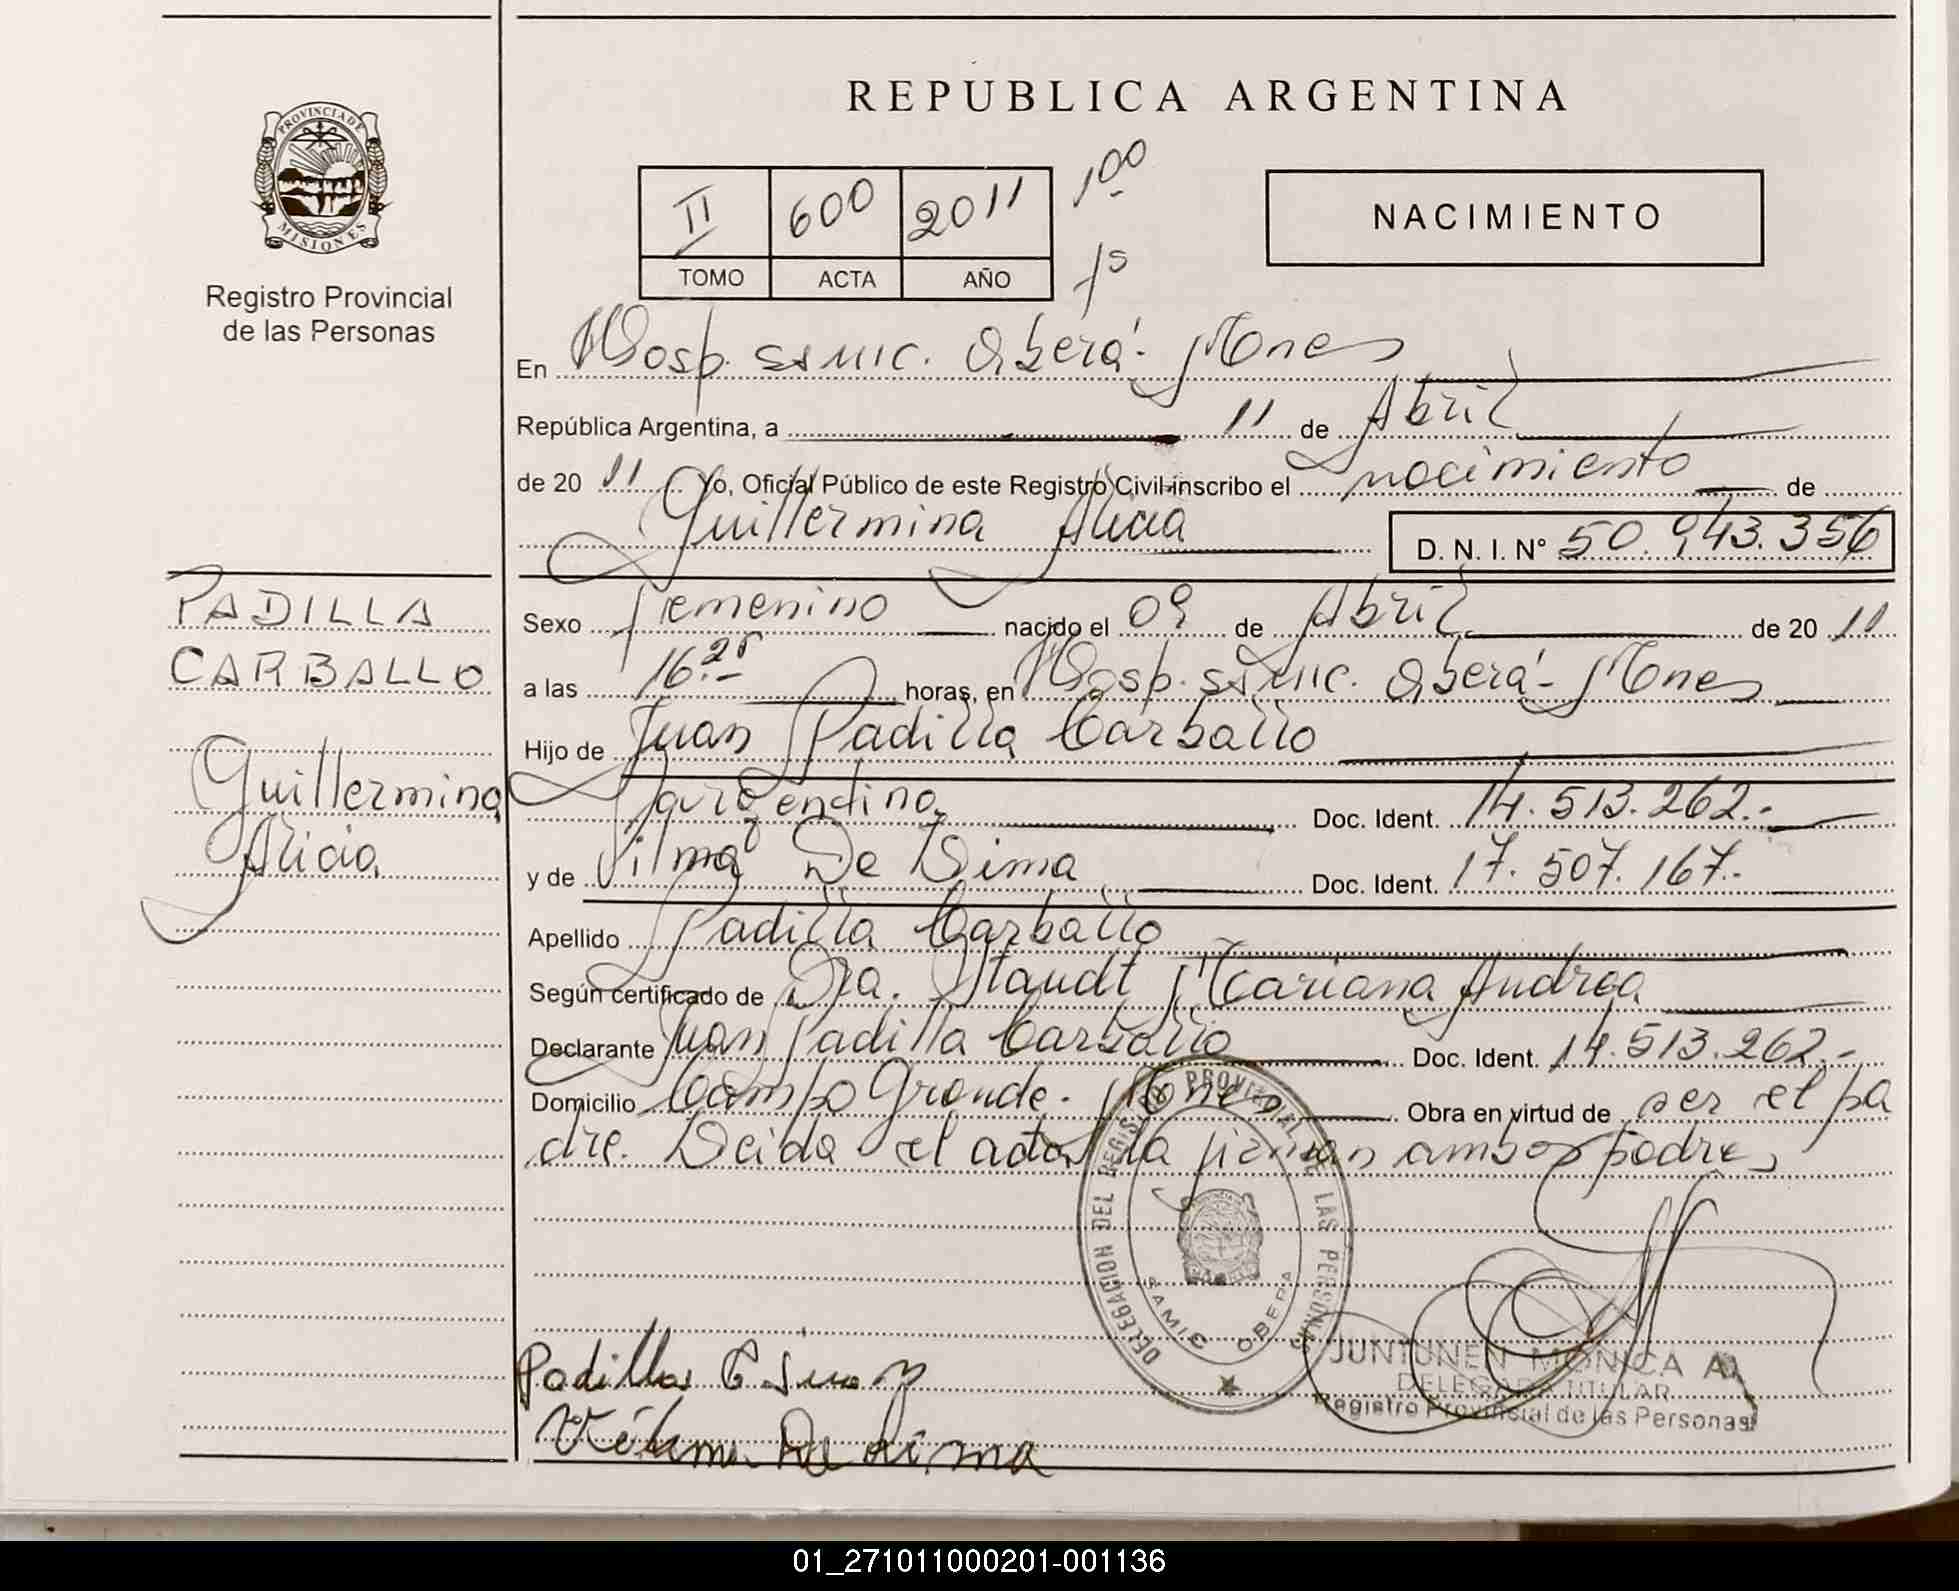 PROVINCIA DE
MISIONES
Registro Provincial
de las Personas
PADILLA
CARBALLO
Guillermina
Alicia
REPUBLICA ARGENTINA
II 600 2011 100
TOMO ACTA AÑO
NACIMIENTO
En Hosp. SAMIC. Oberá - Mnes
República Argentina, a 11 de Abril
de 20 11 Yo, Oficial Público de este Registro Civil inscribo el nacimiento de
Guillermina Alicia D. N. I. N° 50.943.356
Sexo femenino nacido el 09 de Abril de 20 11
a las 16.25 horas, en Hosp. SAMIC. Oberá - Mnes
Hijo de Juan Padilla Carballo
argentino Doc. Ident. 14.513.262.-
y de Vilma De Lima Doc. Ident. 17.507.167.-
Apellido Padilla Carballo
Según certificado de Dra. Staudt Mariana Andrea
Declarante Juan Padilla Carballo Doc. Ident. 14.513.262.-
Domicilio Campo Grande - Mnes Obra en virtud de ser el pa
dre. Leida el acta la firman ambos padres
DELEGACION DEL REGISTRO PROVINCIAL DE LAS PERSONAS
SAMIC OBERA
Padilla C Juan
Vilma De Lima
JUNTUNEN MONICA A.
DELEGADA TITULAR
Registro Provincial de las Personas
01_271011000201-001136